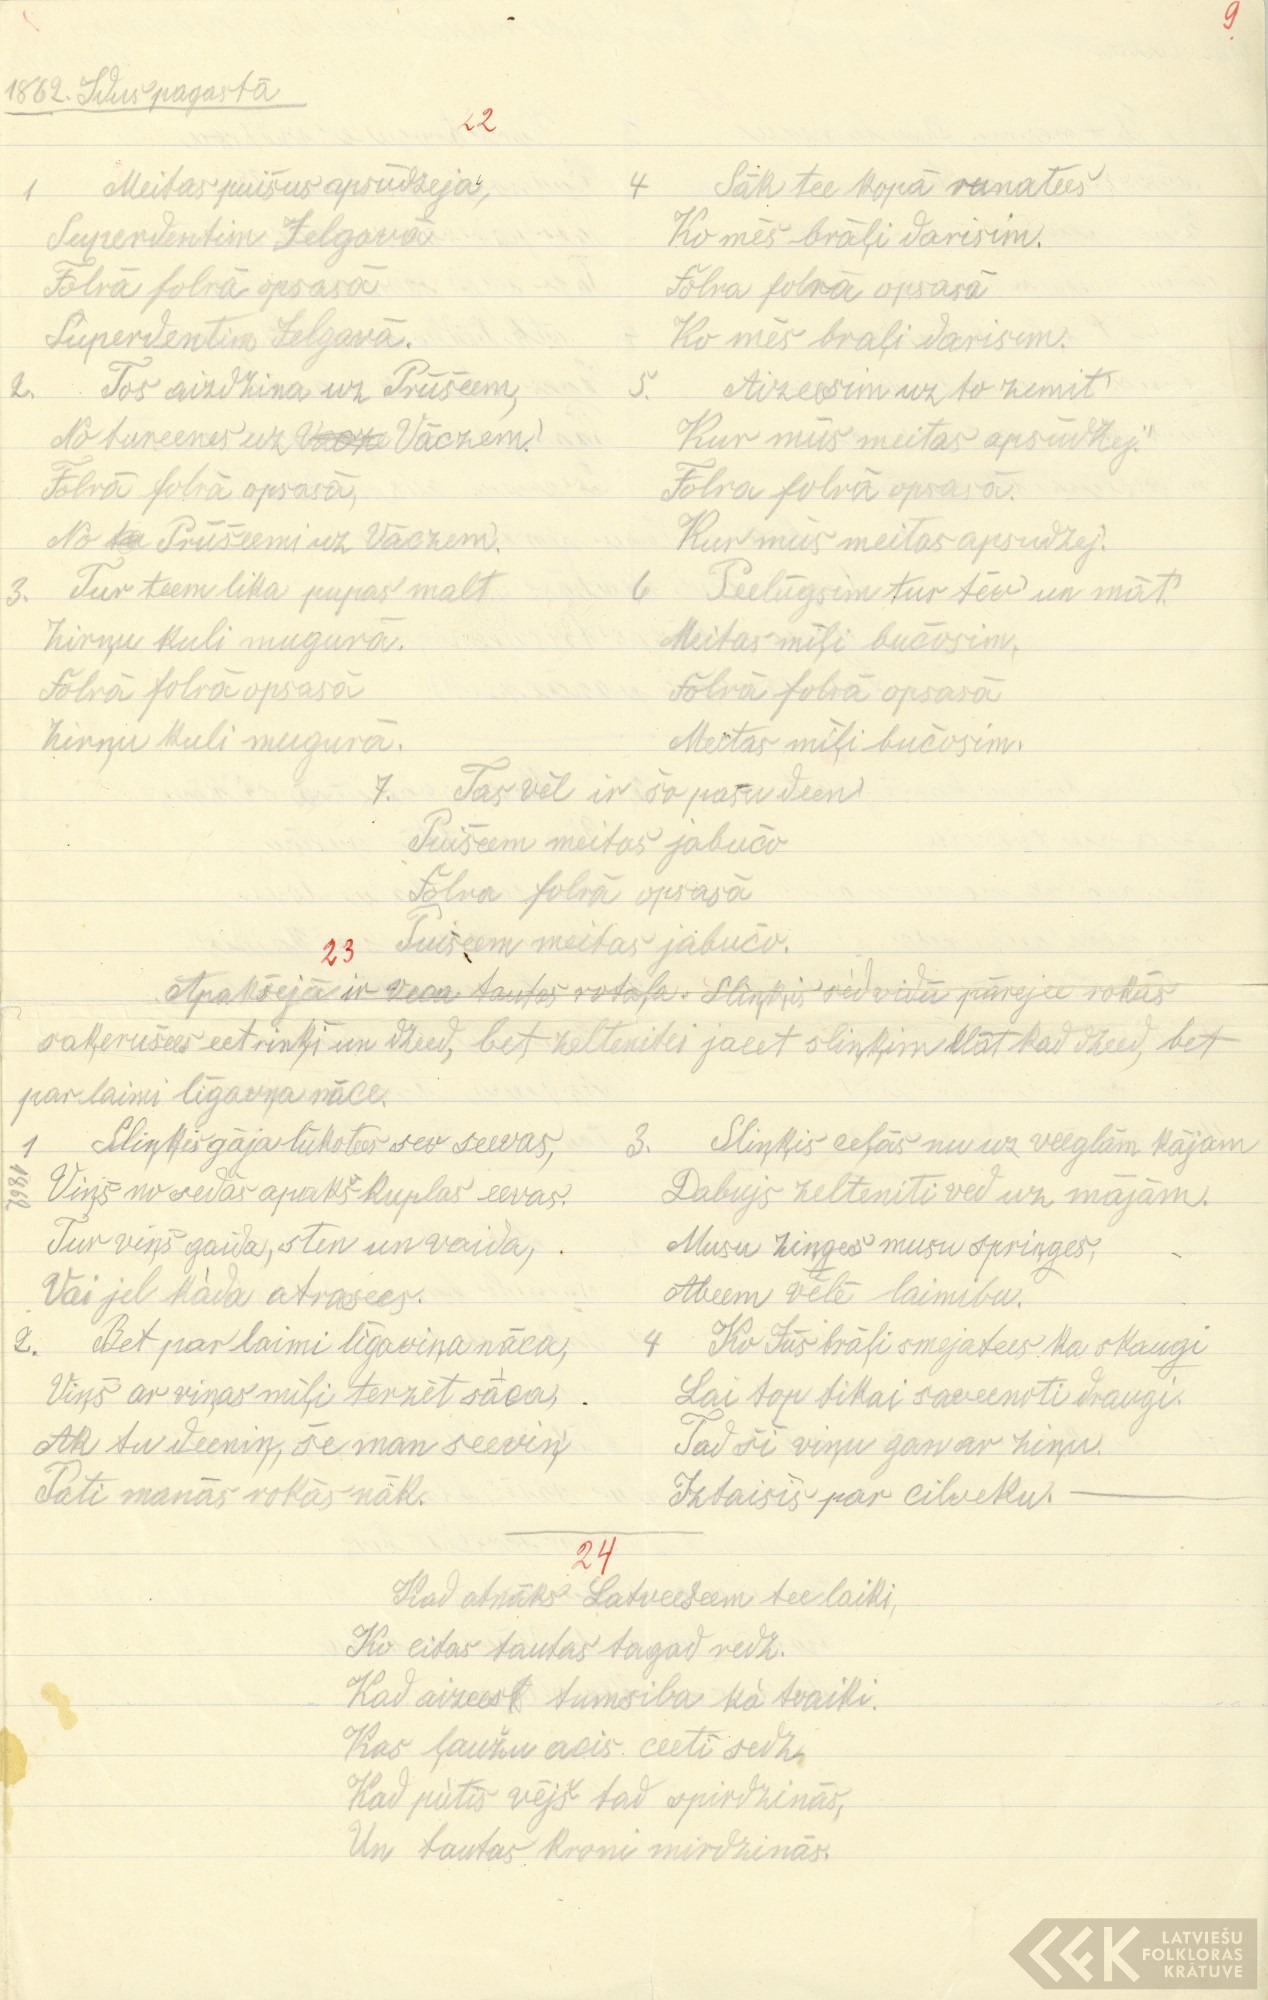 9
1862. Idus pagastā
22
1 Meitas puišus apsūdzeja,
Superdentim Jelgavā
Folrā folrā opsasā
Superdentim Jelgavā.
2. Tos aizdzina uz Prūšeem,
No tureenes uz Vāczem'
Folrā folrā opsasā,
No Prūšeemi uz Vāczem'.
3. Tur teem lika pupas malt
Zirņu kuli mugurā.
Folrā folrā opsasā
Zirņu kuli mugurā.
4 Sāk tee kopā runatees
Ko mēs brāļi darisim.
Folra folrā opsasā
Ko mēs braļi darisim.
5. Aizeesim uz to zemit'
Kur mūs meitas apsūdzej'.
Folra folrā opsasā.
Kur mūs meitas apsudzej'.
6 Peelūgsim tur tēv' un māt'.
Meitas mīļi bučosim,
Folrā folrā opsasā
Meitas mīļi bučosim.
7. Tas vēl ir šo pašu deen'
Puišeem meitas jabučo
Folra folrā opsasā
Puišeem meitas jabučo.
23
Apakšejā ir veca tautas rotaļa. Sliņķis sēd vidū pārejee rokās
saķerušees eet riņķī un dzeed, bet zeltenitei jaeet sliņķim klāt kad dzeed, bet
par laimi līgavņa nāce.
1862
1 Sliņķis gāja lūkotees sev seevas,
Viņš no sedās apakš kuplas eevas.
Tur viņš gaida, sten un vaida,
Vai jel kāda atrasees.
2. Bet par laimi līgaviņa nāca,
Viņš ar viņas mīļi terzēt sāca,
Ak tu deeniņ, še man seeviņ'
Pati manās rokās nāk.
3. Sliņķis ceļās nu uz veeglām kājam
Dabujs zelteniti ved uz mājām.
Musu ziņģes musu spriņģes,
Abeem vēlē laimibu.
4 Ko Jūs brāļi smejatees ka skaugi
Lai top tikai saveenoti draugi.
Tad šī viņu gan ar ziņu.
Iztaisīs par cilveku.
24
Kad atnāks Latveešeem tee laiki,
Ko citas tautas tagad redz.
Kad aizees tumsiba kā tvaiki.
Kas ļaužu acis ceeti sedz,
Kad pūtīs vējš tad spirdzinās,
Un tautas kroni mirdzinās.
LATVIEŠU
FOLKLORAS
KRĀTUVE